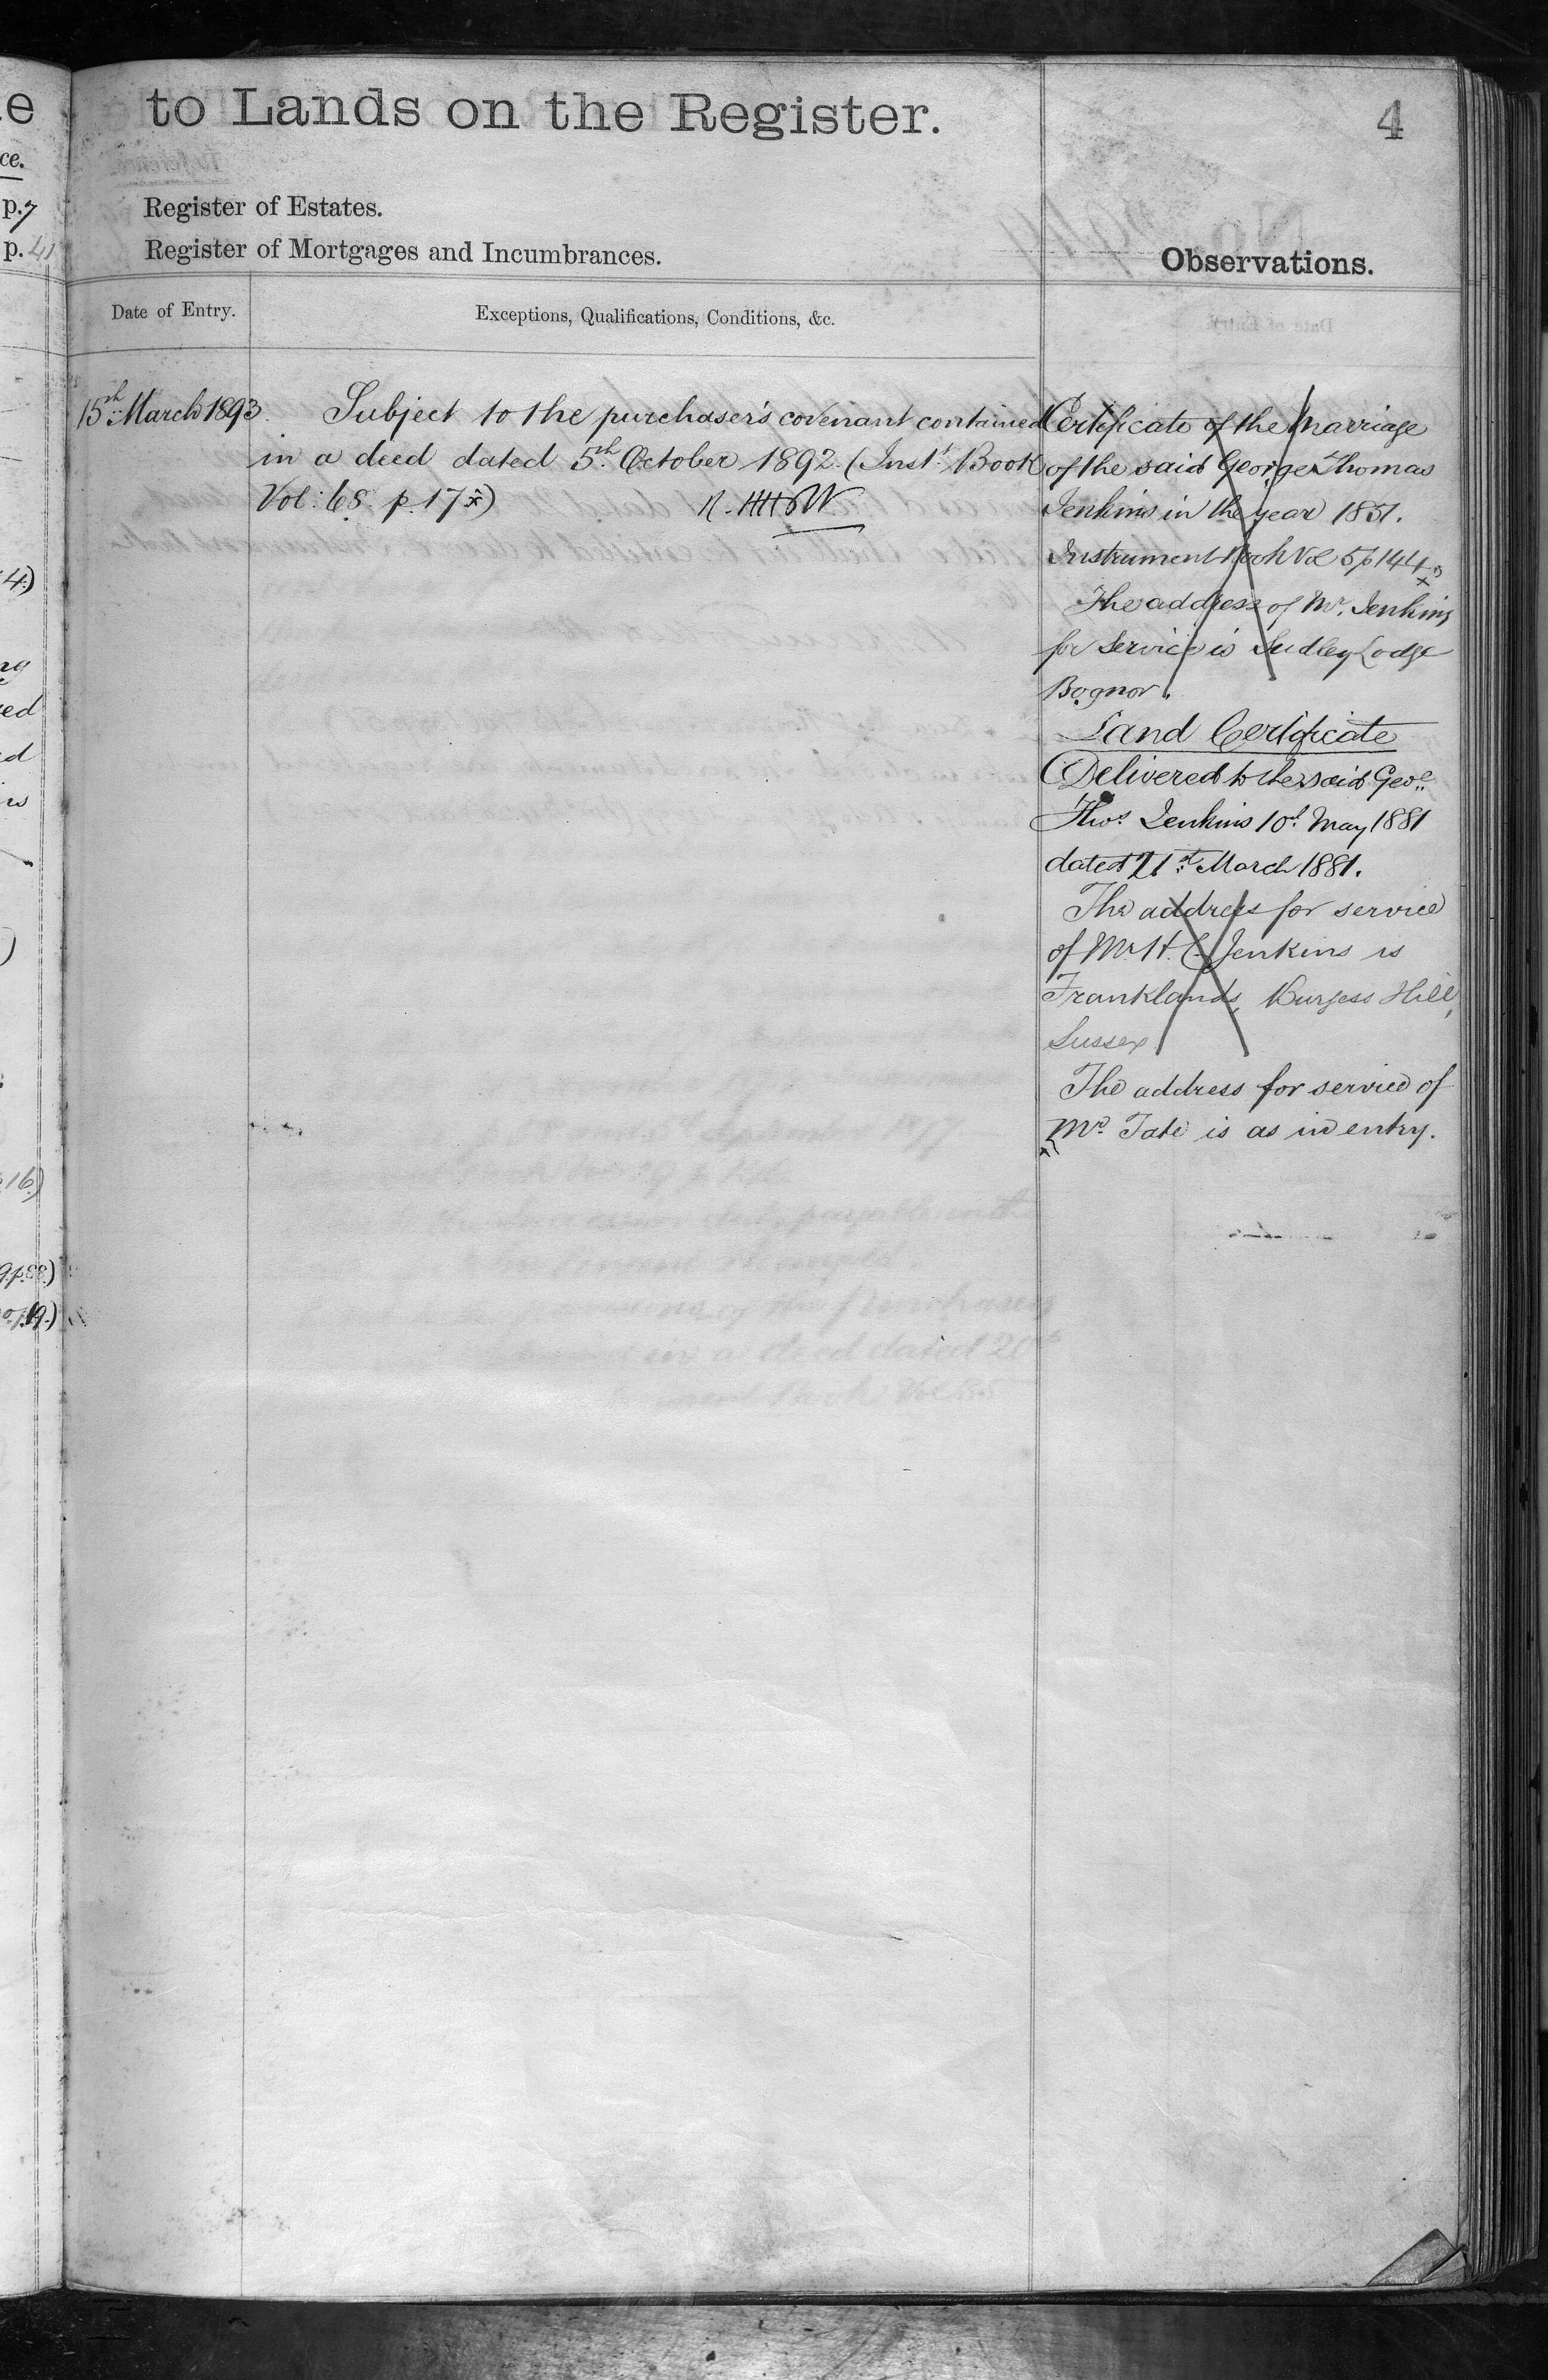 to Lands on the Register.
4
Register of Estates.
Register of Mortgages and Incumbrances.
Observations.
Date of Entry.
Exceptions, Qualifications, Conditions, &c.
15th March 1893.
Subject to the purchaser's covenant contained
in a deed dated 5th October 1892. (Inst. Book
Vol: 68. p. 17 x)
Certificate of the Marriage
of the said George Thomas
Jenkins in the year 1851.
Instrument Book Vol 5 p 144
The address of Mr. Jenkins
for service is Sudley Lodge
Bognor.
Land Certificate
Delivered to the said Geoe.
Thos. Jenkins 10th May 1881
dated 21st March 1881.
The address for service
of Mr H. C. Jenkins is
Franklands, Burgess Hill,
Sussex
The address for service of
Mr. Tate is as in entry.